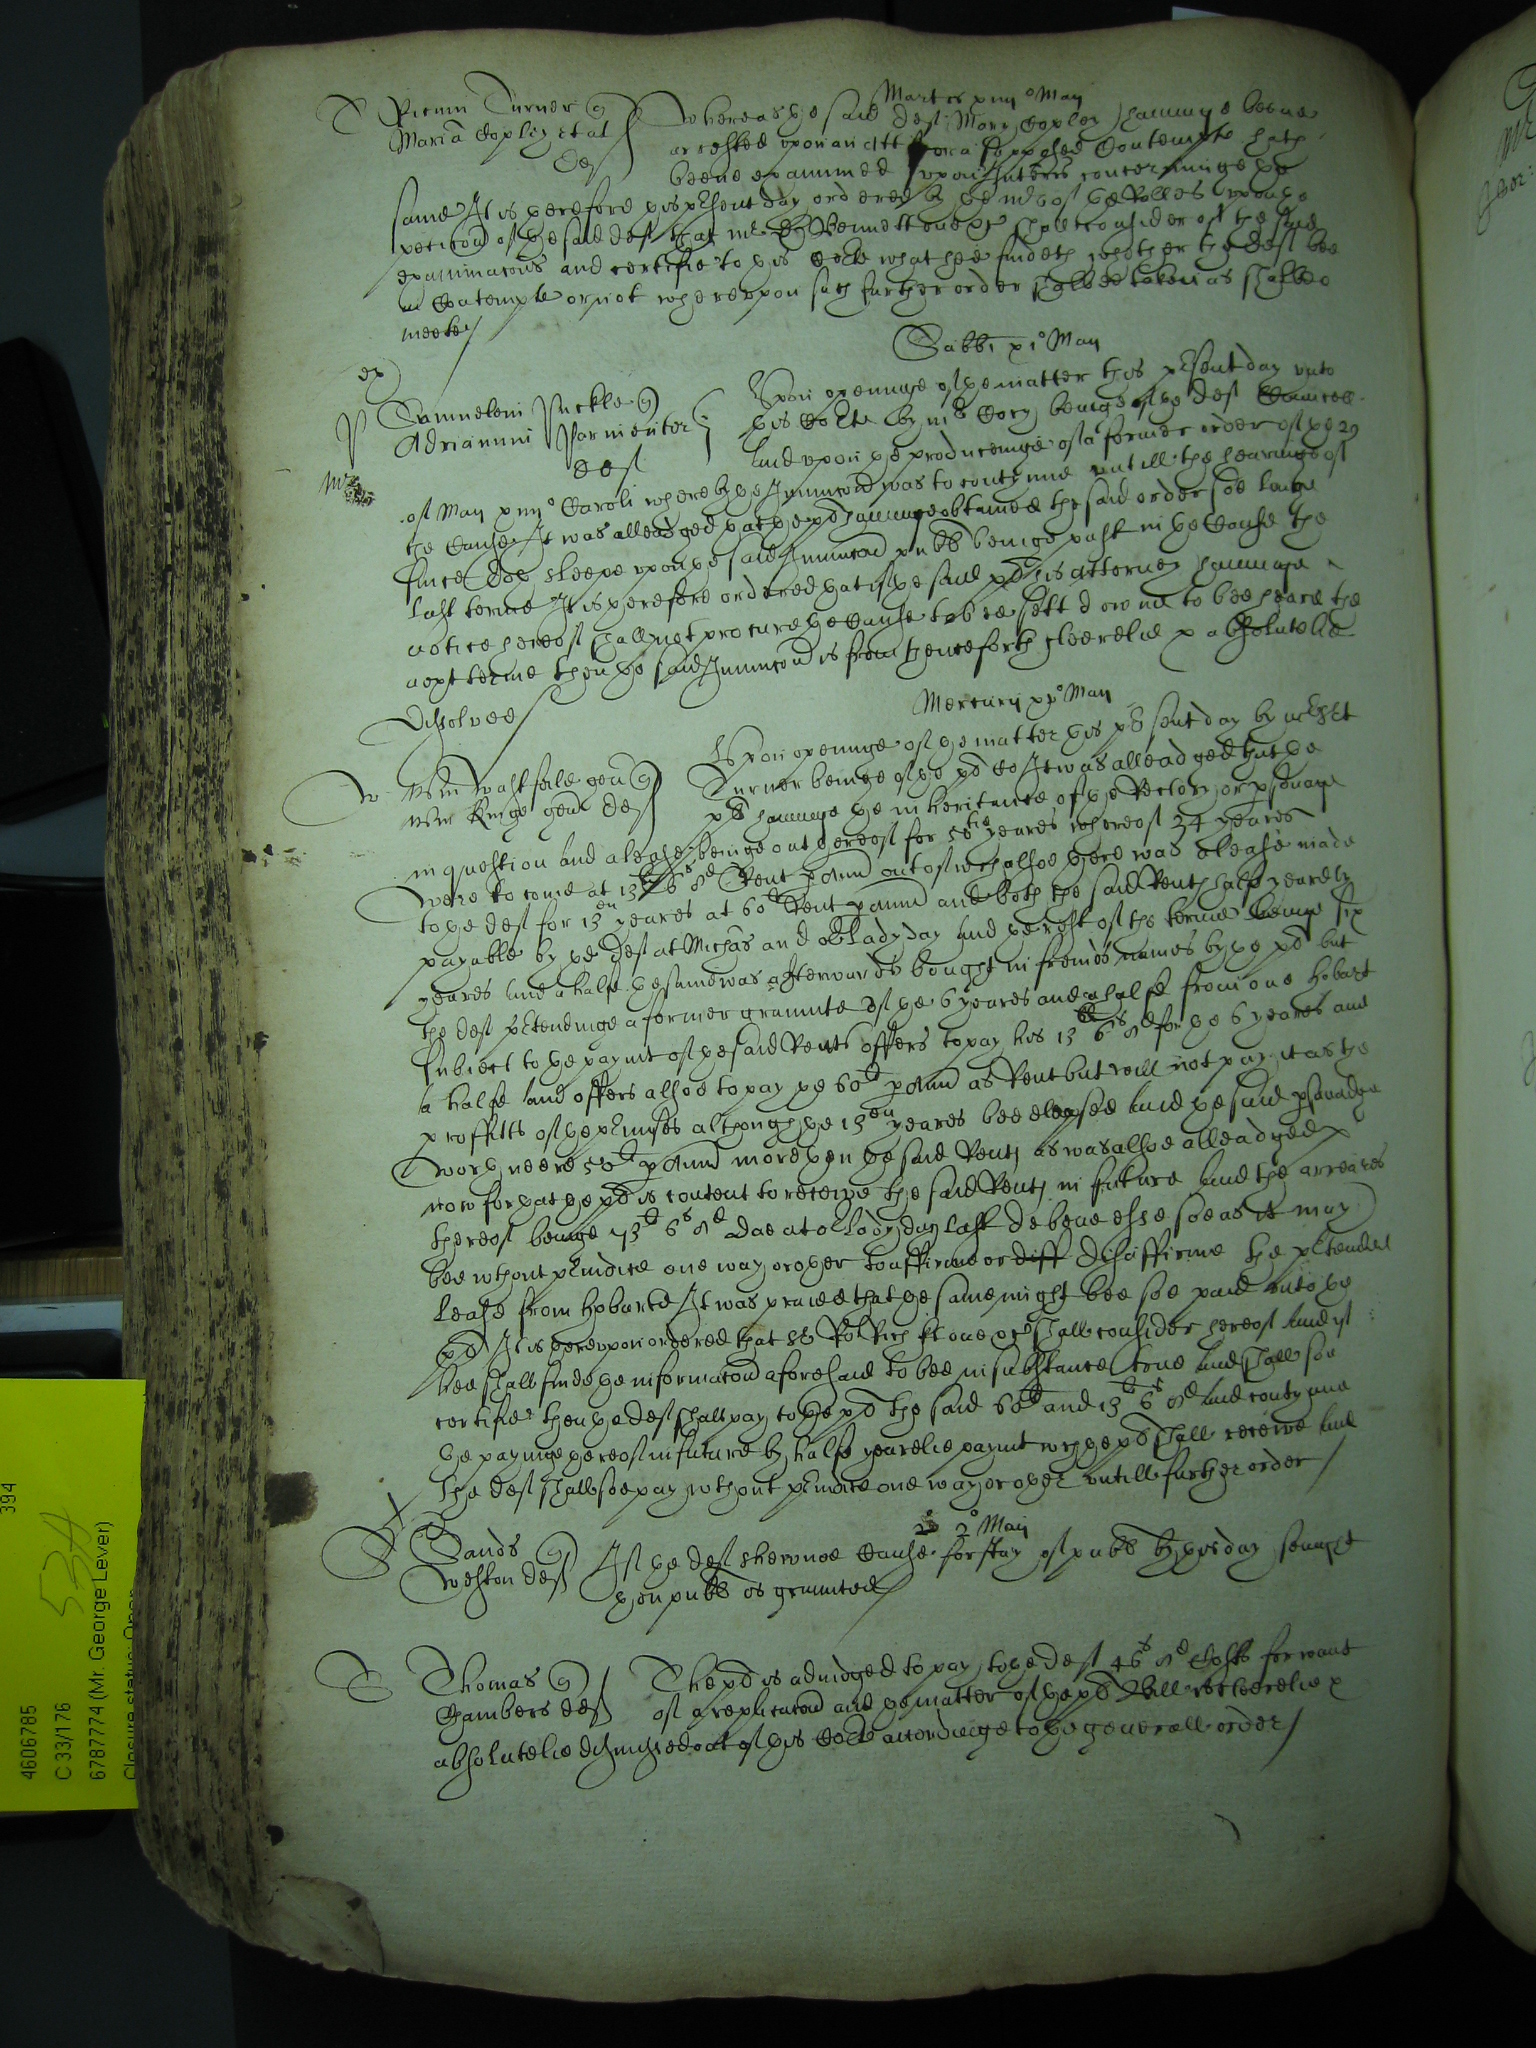 Martis xiiij° Maij
T Picum Turner q
Maria Copley et al
def
Whereas ye said def Mary Copley haueinge beene
arrested vpon an Att for a supposed Contempte hath
beene examined vpon Interrs concerninge ye
same It is therefore this present day ordered by ye mr of ye Rolles vpon ye
peticon of ye said def that mr Dr Bennett one &c shall consider of the said
examinacons and certifie to this Corte what hee findeth whether the def bee
in Contempte or not whereupon such further order shalbee taken as shalbee
meete
Sabbi xi° Maij
ex
P Samuelem Puckle q
Adrianum Parmenter
def
Vpon openinge of ye matter this present day vnto
this Corte by mr Cory beinge of ye def Councell
and vpon ye produceinge of a former order of ye 29
of May xiij° Caroli whereby ye Iniuncon was to contynue vntill the hearinge of
the Cause It was alleadged yat ye pl haueinge obtained the said order soe longe
since doth sleepe vpon ye said Iniuncon publ beinge past in ye Cause the
last terme It is therefore ordered yat if ye said pl his Attorney haueinge
notice hereof shall not procure ye Cause to bee sett downe to bee heard the
next terme then ye said Iniuncon is from thenceforth cleerelie & absolutelie
dissolved
Mercurij xv° Maij
W Wm Wastfeld gen q
Wm Kinge gen def
Vpon openinge of ye matter this present day by
Turner beinge of ye pl Co It was alleadged that ye
pl haueinge ye inheritance of ye Rectory or psonage
in question and a lease beinge out thereof for 50tie yeares whereof 24 yeares
were to come at 13l 6s 8d Rent p Annu out of wch alsoe there was a lease made
to ye def for 13en yeares at 60l Rent p annu and both the said Rents halfe yearely
payable by ye def at Michas and or Lady day and ye rest of the terme beinge six
yeares and a halfe ye same was afterwards bought in freinds names by ye pl but
the def pretendinge a former graunte of ye 6 yeares and a halfe from one Hobart
subiect to ye paymt of ye said Rents offers to pay his 13l 6s 8d for ye 6 yeares and
a halfe and offers alsoe to pay ye 60l p Annu as Rent but will not pay it as the
proffitts of ye premises although ye 13en yeares bee elapsed and ye said psonadge
worth neere 50l p Annu more then ye said Rents as was alsoe alleadged
now for yat ye pl is content to receive the said Rents in future and the arreares
thereof beinge 73l 6s 8d due at or Lady day last de bene esse soe as it may
bee wthout preiudice one way or other to affirme or diff disaffirme the pretended
lease from Hobarte It was praied that ye same might bee soe paid vnto ye
pl It is thereupon ordered that Sr Rob Rich kt one &c shall consider hereof and if
hee shall finde ye informacon aforesaid to bee in substance true and shall soe
certifie then ye def shall pay to ye pl the said 60l and 13l 6s 8d and contynue
ye payinge thereof in future by halfe yearelie paymt wch ye pl shall receive and
the def shall soe pay wthout preiudice one way or other vntill further order
2° Maij
S Sands q
Weston def
If ye def shewe noe Cause for stay of publ by this day sennight
then publ is graunted
T Thomas q
Chambers def
The pl is adiudged to pay to ye def 46s 8d Costs for want
of a replicacon and ye matter of ye pl Bill is cleerelie &
absolutelie dismissed out of this Corte accordinge to ye generall order
394
534
4606785
C 33/176
6787774 (Mr. George Lever)
Closure status: Open